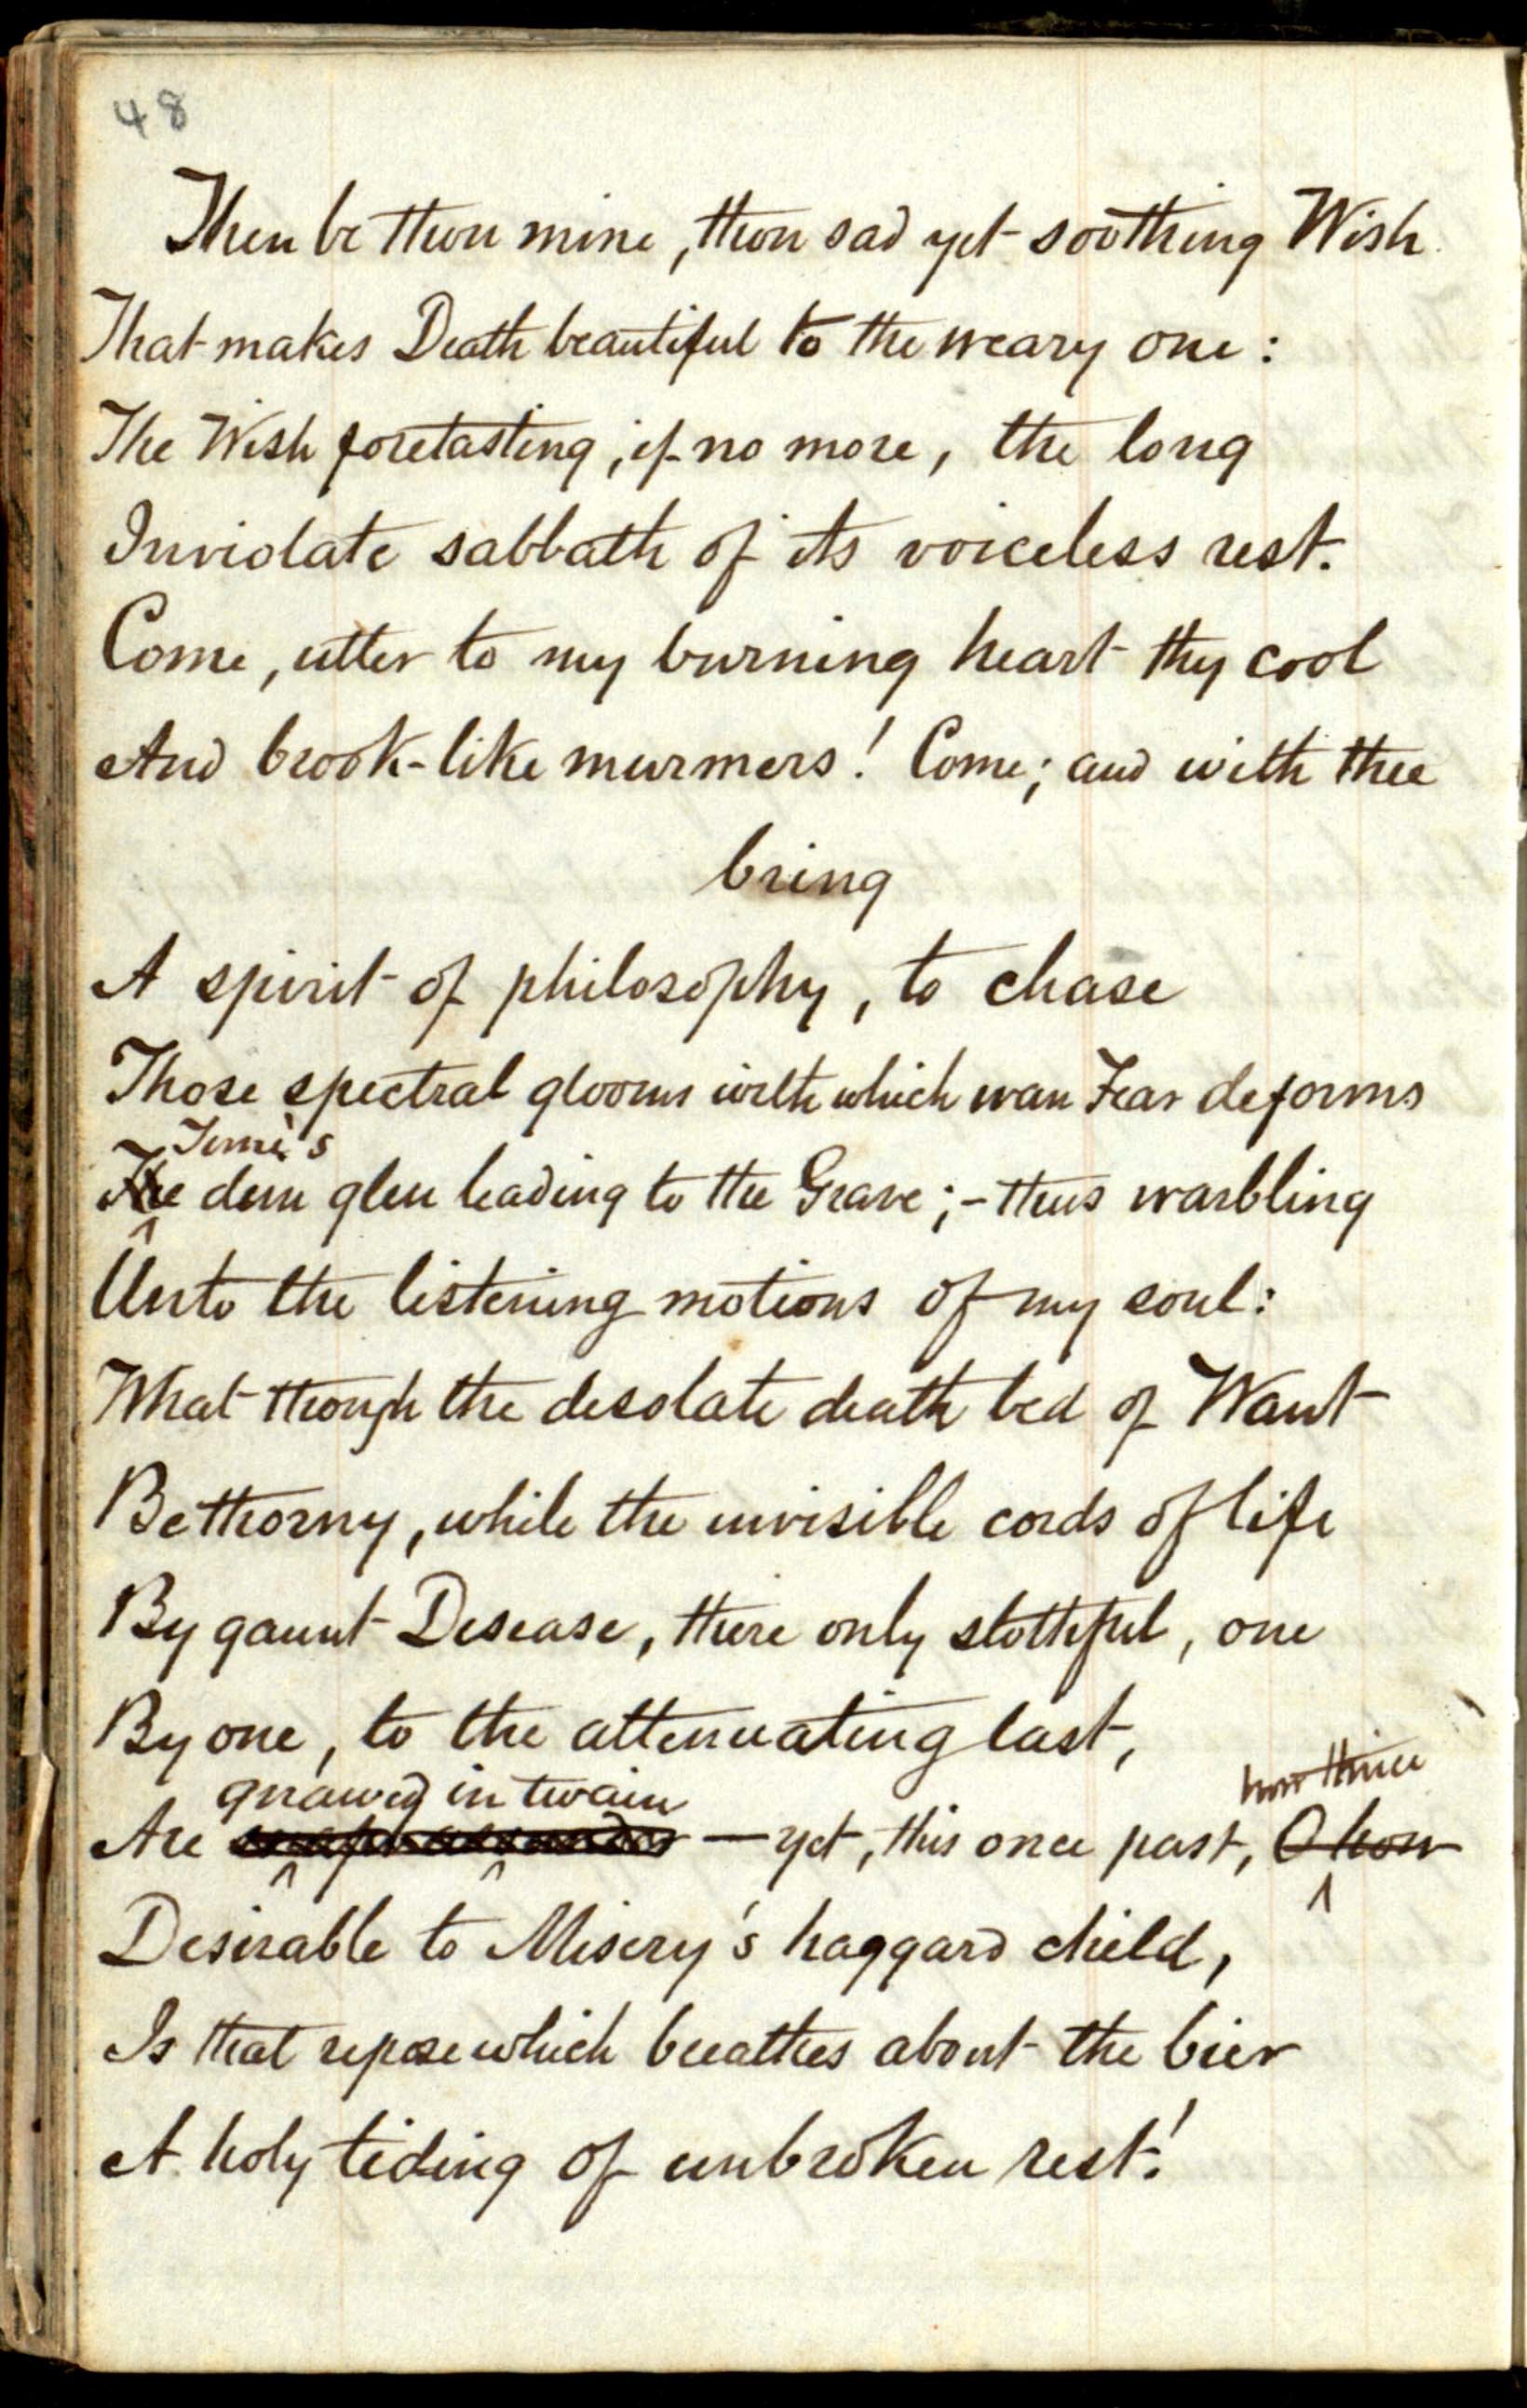 48
Then be thou mine, thou sad yet soothing Wish
That makes Death beautiful to the weary one:
The Wish foretasting, if no more, the long
Inviolate sabbath of its voiceless rest.
Come, utter to my burning heart thy cool
And brook-like murmers! Come; and with thee
bring
A spirit of philosophy, to chase
Those spectral glooms with which wan Fear deforms
Time's
The dim glen leading to the Grave;- thus warbling
Unto the listening motions of my soul:
What though the desolate death bed of Want
Be thorny, while the invisible cords of life
By gaunt Disease, there only slothful, one
By one, to the attenuating last,
gnawed in twain how thrice
Are — yet, this once past, O how
Desirable to Misery's haggard child,
Is that repose which breathes about the bier
A holy tiding of unbroken rest!